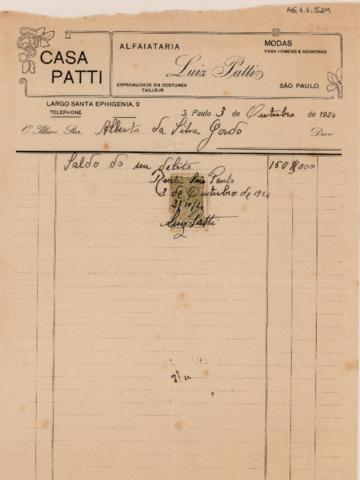 AS.1.1.529
CASA
PATTI
ALFAIATARIA
Luiz Patti
ESPECIALIDADE EM COSTUMES
TAILLEUR
MODAS
PARA HOMENS E SENHORAS
SÃO PAULO
LARGO SANTA EPHIGENIA, 2
TELEPHONE
S. Paulo 3 de Outubro de 1924
O Illmo. Snr. Alberto da Silva Gordo Deve
Saldo do seu debito 150$000
Recebi São Paulo
3 de Outubro de 1924
3/10/24
Luiz Patti